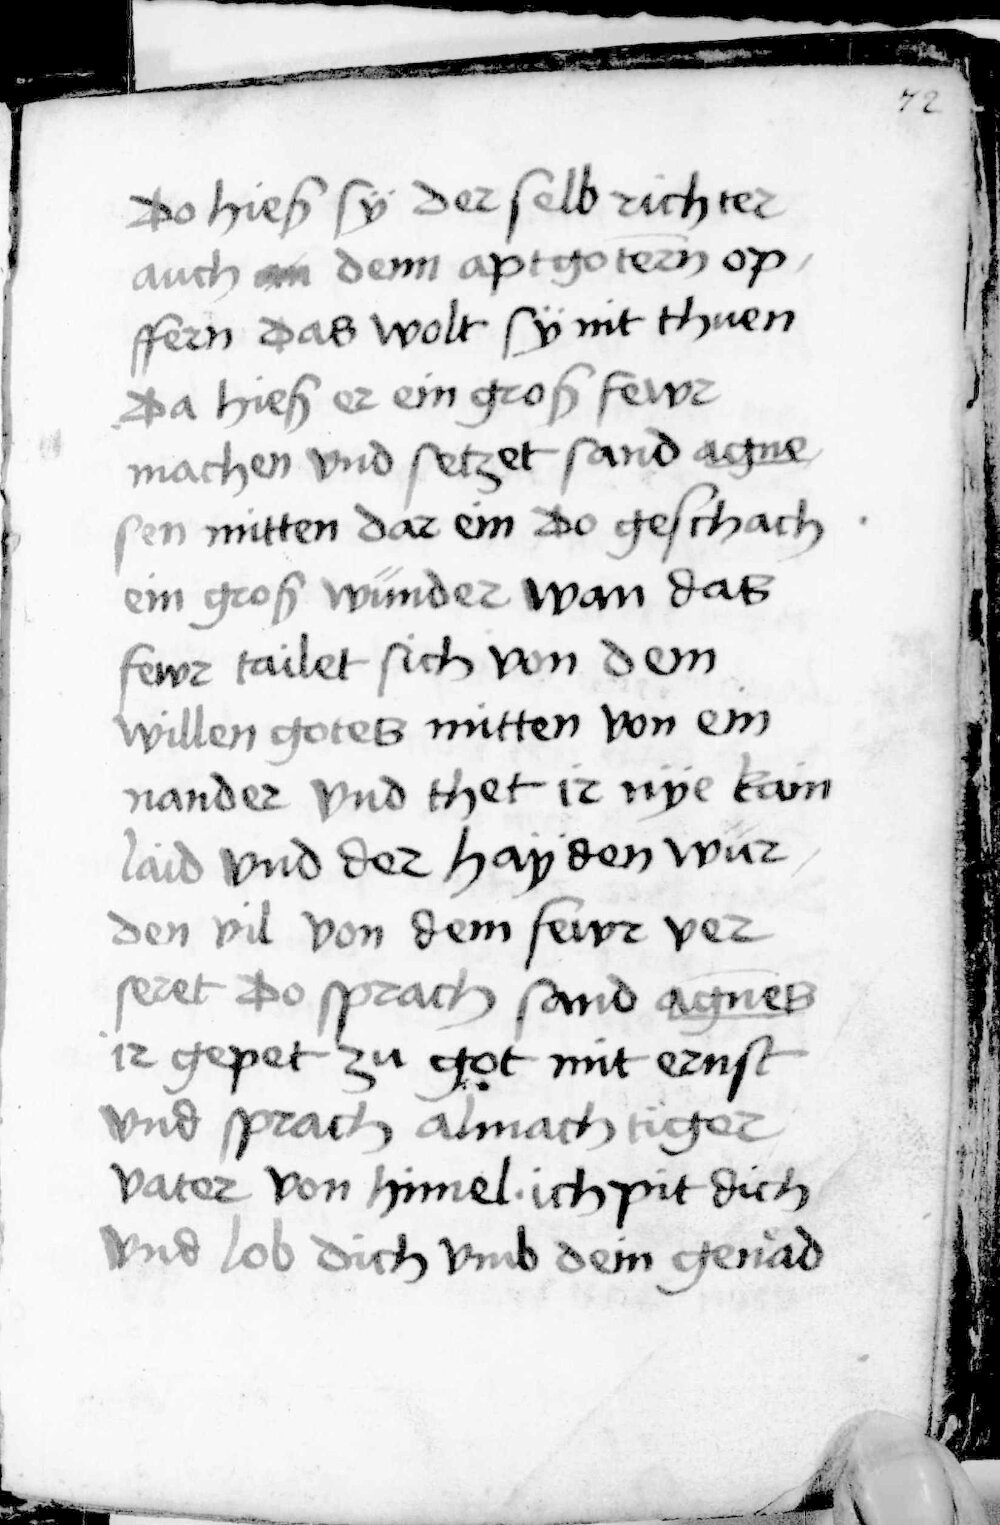 72
Do hieß sÿ der selb richter
auch denn aptgotern op,
ffern Das wolt sÿ nit thuen
Da hieß er ein groß fewr
machen vnd setzet sand agne
sen mitten dar ein Do geschach
ein groß wunder wan das
fewr tailet sich von dem
willen gotes mitten von ein
nander vnd thet ir nÿe kain
laid vnd der haÿden wur,
den vil von dem fewr ver
seret Do sprach sand agnes
ir gepet zu got mit ernst
vnd sprach almachtiger
vater von himel · ich pit dich
vnd lob dich vmb dein genad